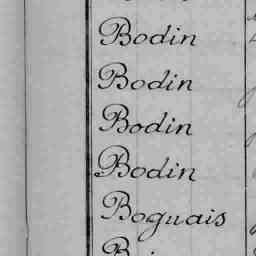 Bodin
Bodin
Bodin
Bodin
Boguais